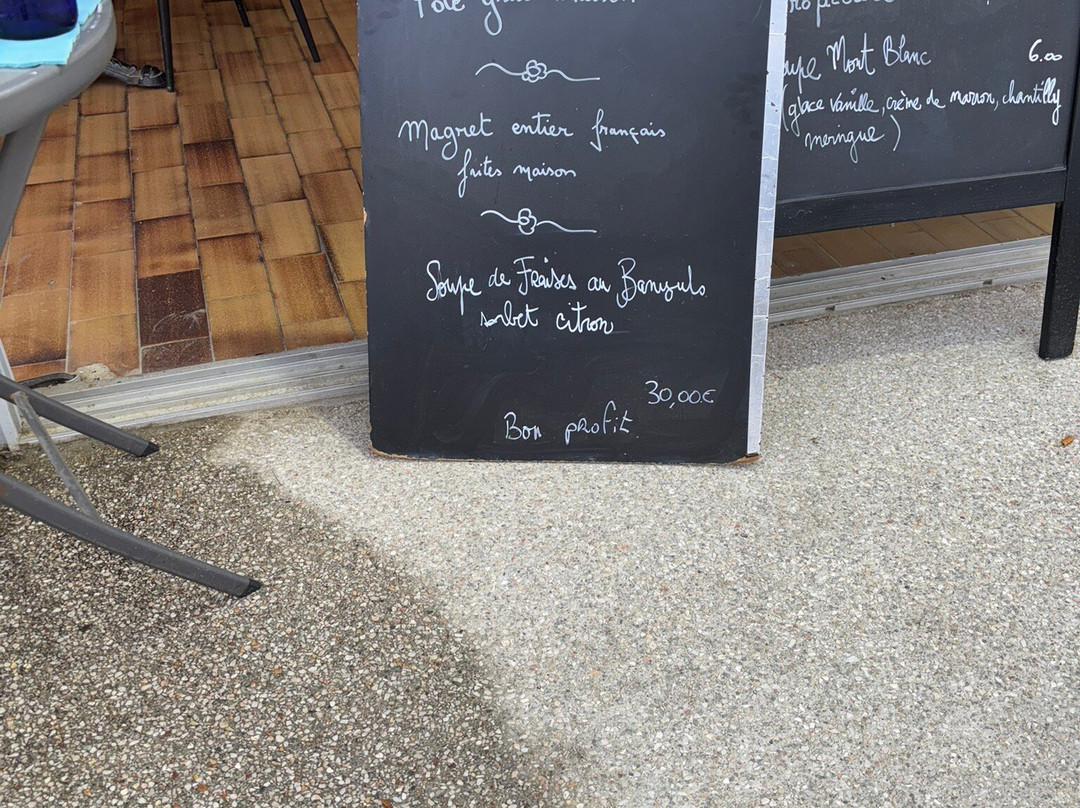 Magret entier français
frites maison
Soupe de Fraises au Banyuls
sorbet citron
30,00€
Bon profit.
Mont Blanc
6.00
(glace vanille, crème de marron, chantilly
meringue)